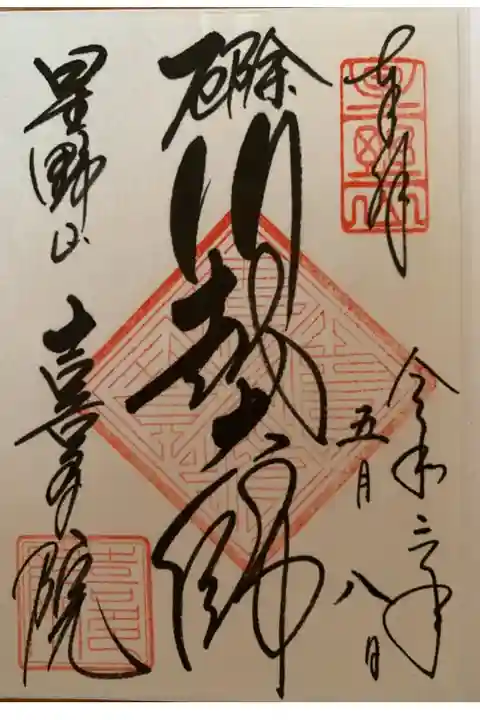 奉拝
令和二年
五月八日
厄除
川越大師
星野山
喜多院